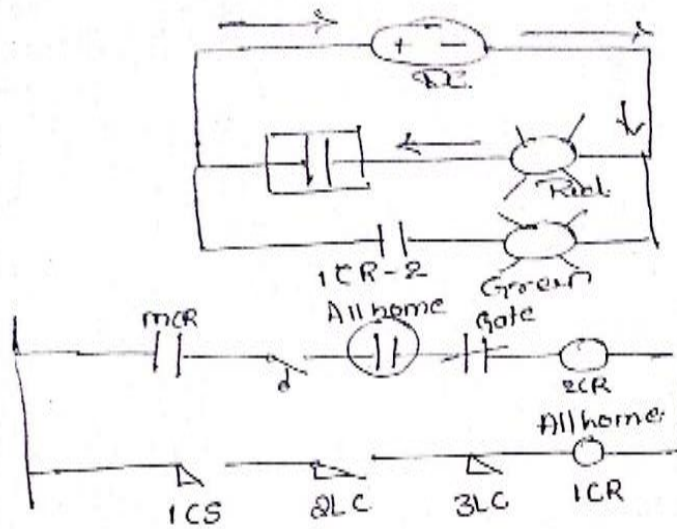 + -
DC
Red
1CR-2
Green
MCR
All home
Gate
2CR
All home
1CS
2LC
3LC
1CR